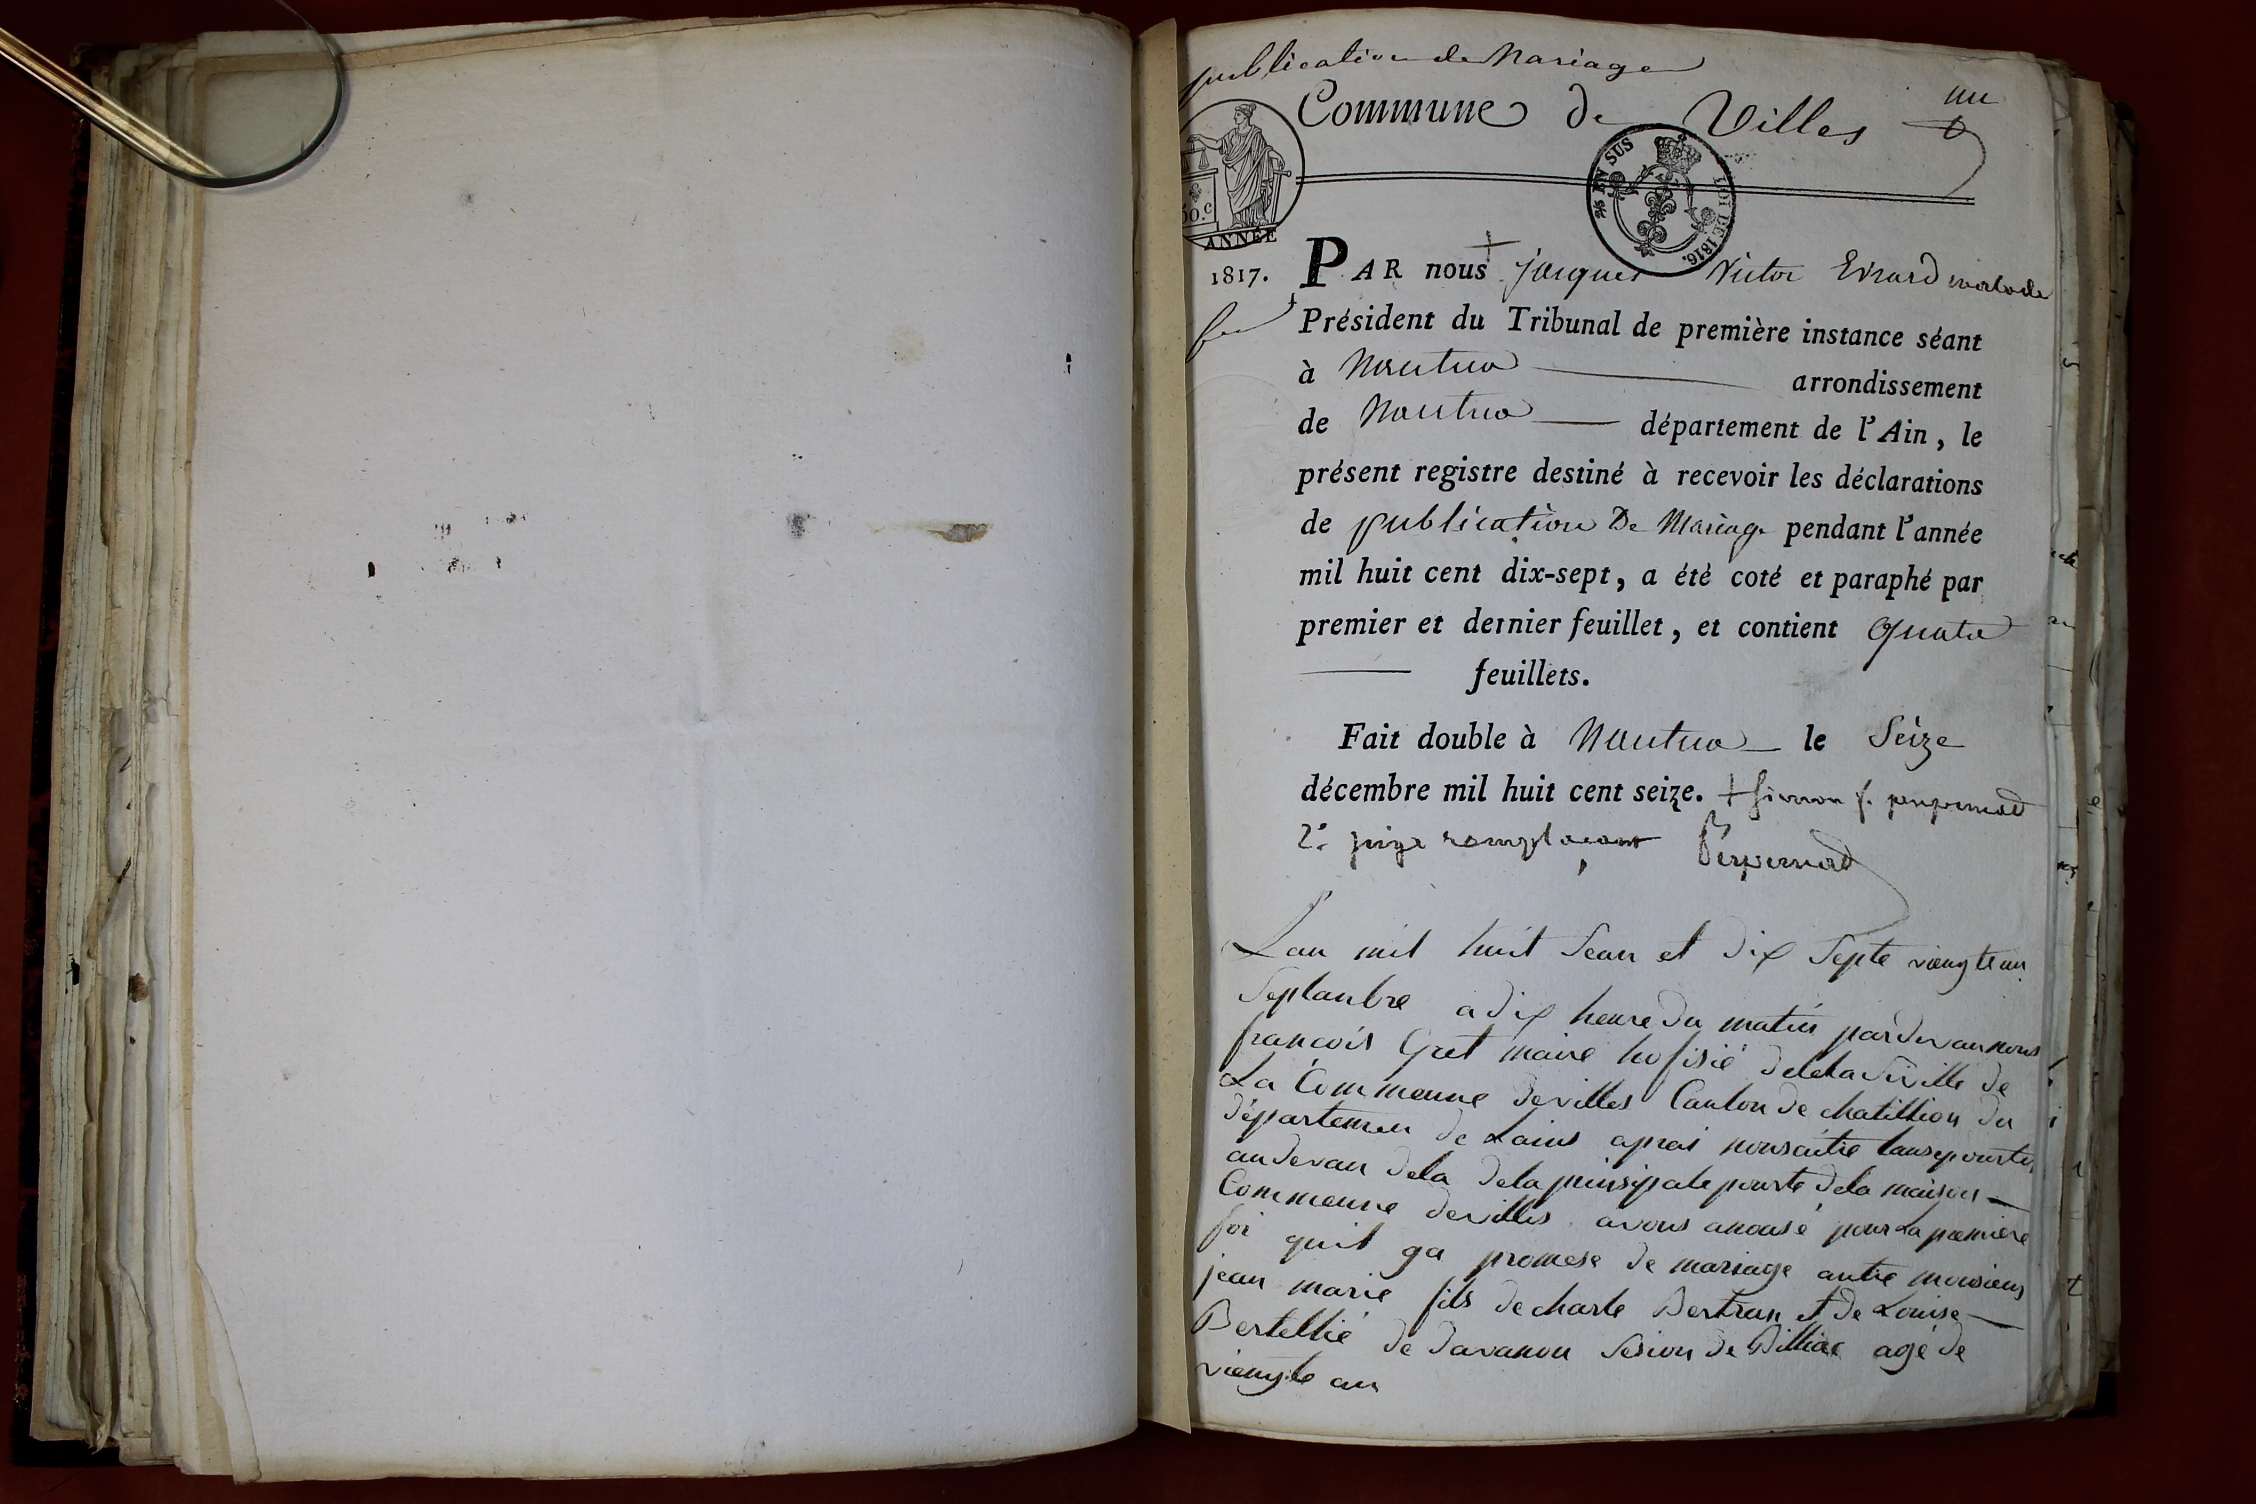 publication de Mariage
Commune de Villes
un
2/5 EN SUS
LOI DE 1816.
50.c
ANNÉE
1817.
PAR nous + jacques Victor Evrard malade
Président du Tribunal de première instance séant
à Nantua arrondissement
de Nantua département de l'Ain, le
présent registre destiné à recevoir les déclarations
de publication De Mariage pendant l'année
mil huit cent dix-sept, a été coté et paraphé par
premier et dernier feuillet, et contient quatre
feuillets.
Fait double à Nantua le Seize
décembre mil huit cent seize. +
2e juge remplaçant
Lan mil huit Sean et dix Septe viengteun
Septanbre a dix heure du matin pardevan nous
francois Gret maire hofisié deleta Siville de
La Commeune devilles Canton de chatillion du
département de Lains aprai nousaitre transpourter
audevan dela dela prinsipale pourte dela maison
Commeune devilles avons anousé pour La premiere
foi quil ya promese de mariage antre monsieur
jean marie fils decharle Bertran et de Louise
Bertellié de davanon Sesion de Billiac agé de
viengte an